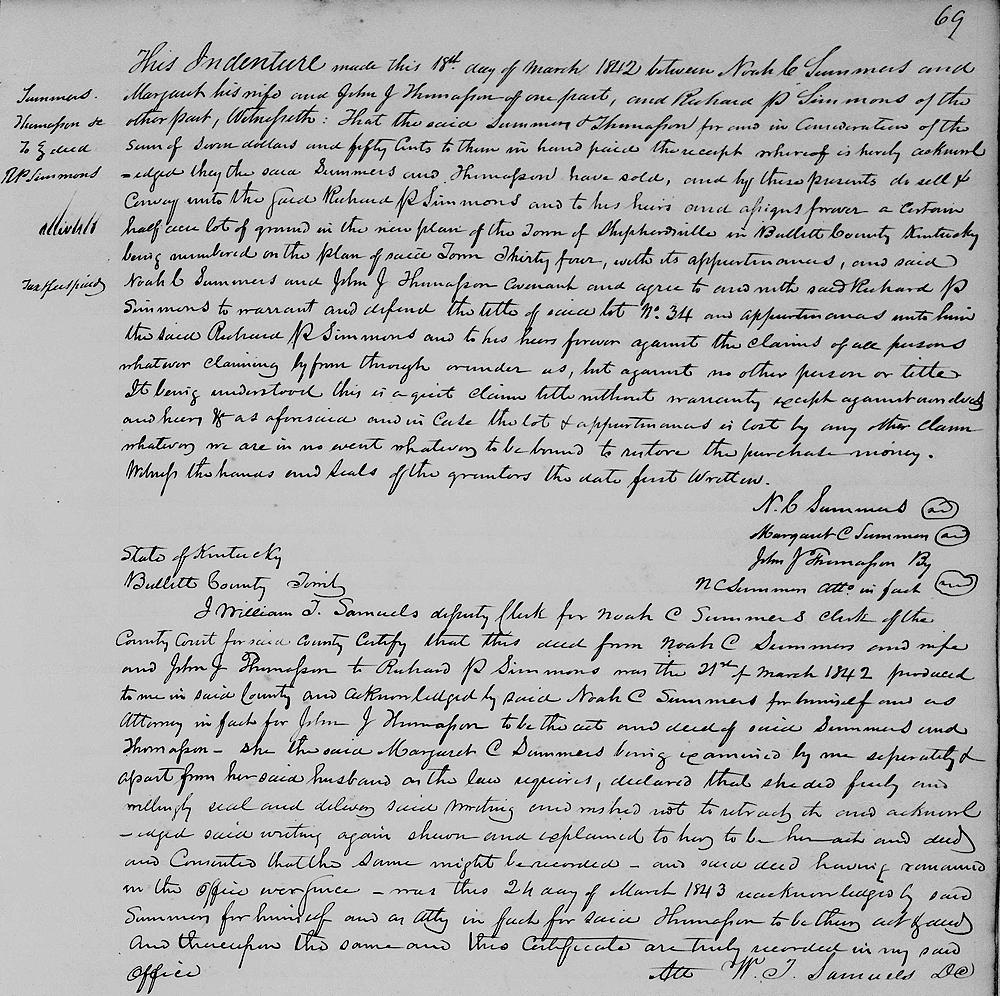 69
This Indenture made this 18th day of March 1842 between Noah C Summers and
Summers.
Margaret his wife and John J Thomasson of one part, and Richard P Simmons of the
Thomasson &c
other part, Witnesseth: That the said Summers & Thomasson for and in Consideration of the
To } deed
Sum of Seven dollars and fifty Cents to them in hand paid the receipt whereof is hereby acknowl
R P Simmons
-edged they the said Summers and Thomasson have sold, and by these presents do sell &
Convey unto the said Richard P Simmons and to his heirs and assigns forever a Certain
half acre lot of ground in the new plan of the Town of Shepherdsville in Bullitt County Kentucky
being numbered on the plan of said Town Thirty four, with its appurtenances, and said
Tax fees paid
Noah C Summers and John J Thomasson Covenant and agree to and with said Richard P
Simmons to warrant and defend the title of said lot No. 34 and appurtenances unto him
the said Richard P Simmons and to his heirs forever against the claims of all persons
whatever claiming by from through or under us, but against no other person or title
It being understood this is a quit claim title without warranty except against our deeds
and heirs & as aforesaid and in Case the lot & appurtenances is lost by any other claim
whatever we are in no event whatever to be bound to restore the purchase money.
Witness the hands and seals of the grantors the date first Written.
N. C Summers
Margaret C Summers
State of Kentucky
John J Thomasson By
Bullitt County
N C Summers Atto in fact
I William T. Samuels deputy Clerk for Noah C Summers clerk of the
County Court for said County Certify that this deed from Noah C Summers and wife
and John J Thomasson to Richard P Simmons was the 21st of March 1842 produced
to me in said County and acknowledged by said Noah C Summers for himself and as
Attorney in fact for John J Thomasson to be the act and deed of said Summers and
Thomasson - she the said Margaret C Summers being examined by me seperately &
apart from her said husband as the law requires, declared that she did freely and
willingly seal and deliver said writing and wished not to retract it and acknowl
-edged said writing again shewn and explained to her to be her act and deed
and Consented that the same might be recorded - and said deed having remained
in the office ever since - was this 24 day of March 1843 reacknowledged by said
Summers for himself and as atty in fact for said Thomasson to be their act & deed
And thereupon the same and this Certificate are truly recorded in my said
office
Att W. T. Samuels DC